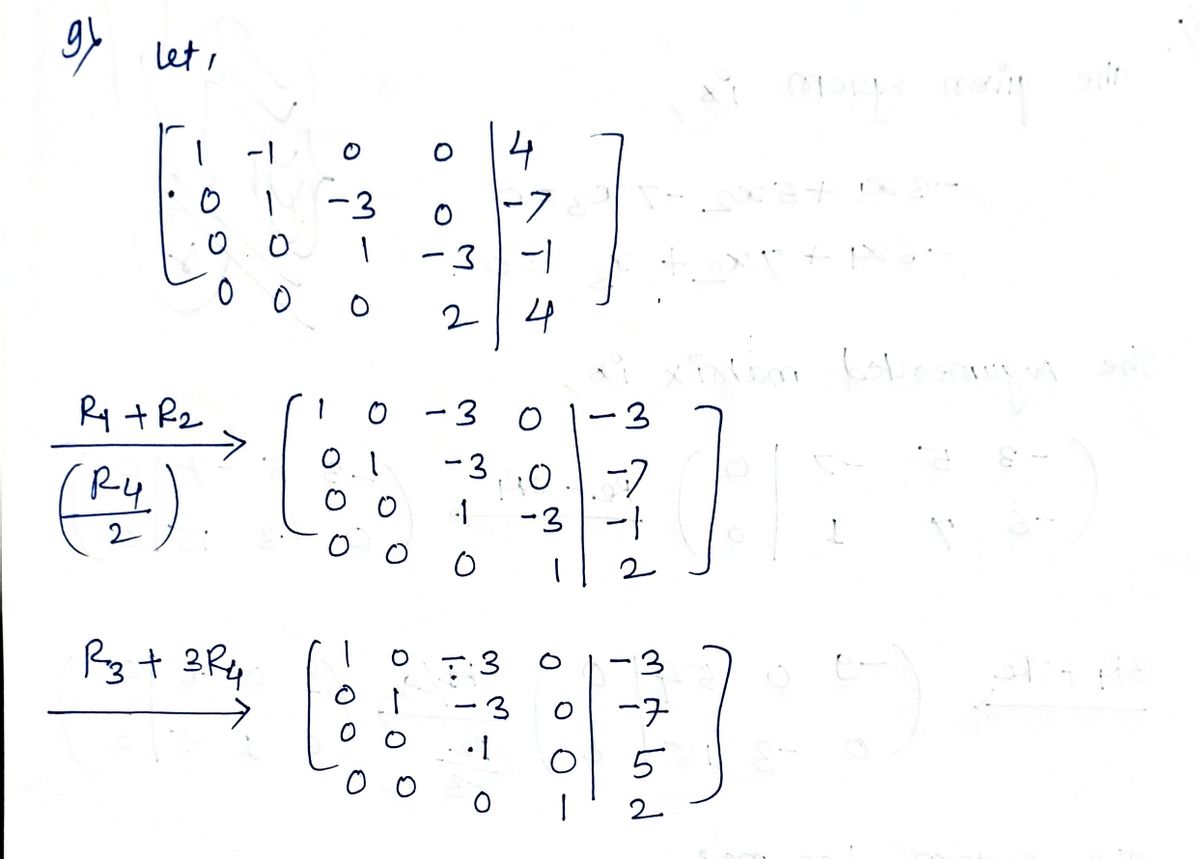 9) Let,
1 -1 0 0 | 4
0 1 -3 0 | -7
0 0 1 -3 | -1
0 0 0 2 | 4
R1 + R2
(R4/2)
1 0 -3 0 | -3
0 1 -3 0 | -7
0 0 1 -3 | -1
0 0 0 1 | 2
R3 + 3R4
1 0 -3 0 | -3
0 1 -3 0 | -7
0 0 1 0 | 5
0 0 0 1 | 2